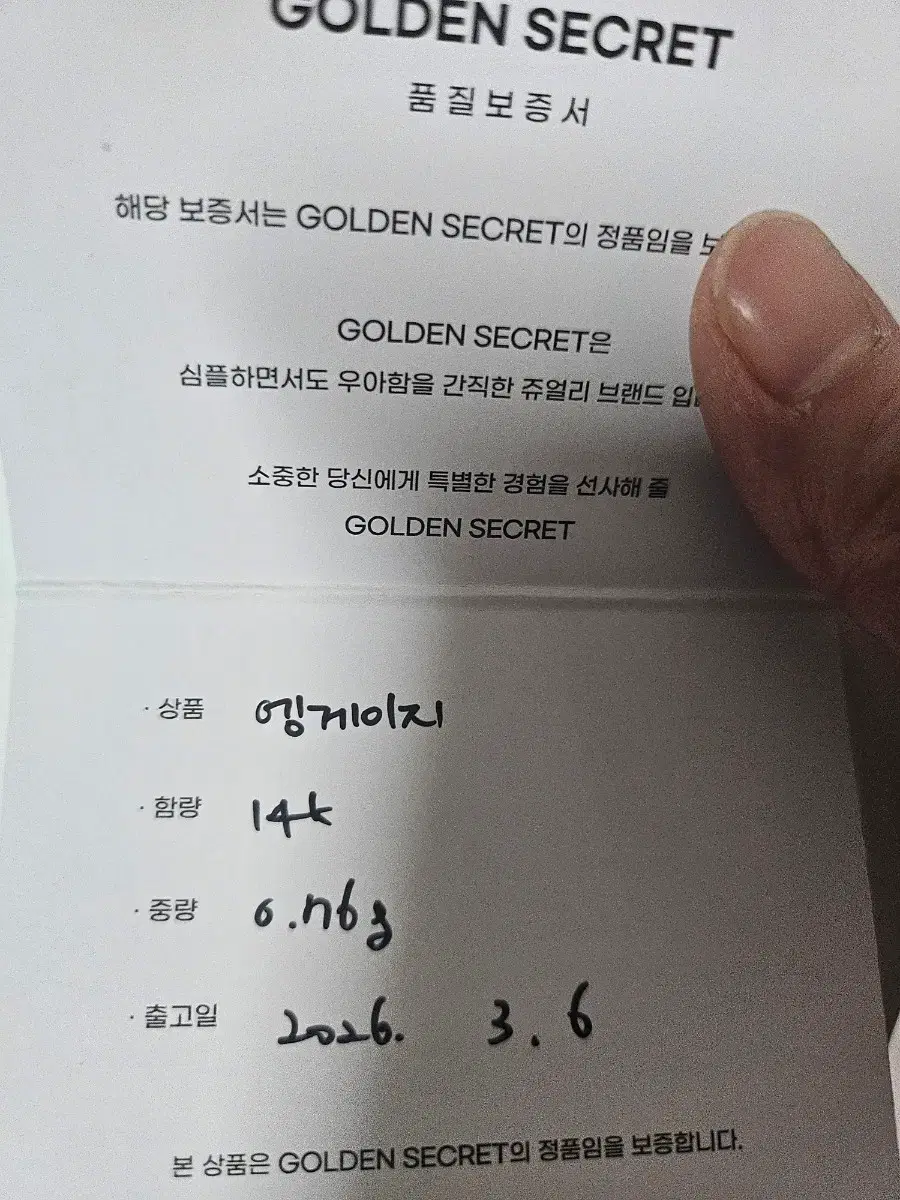 GOLDEN SECRET
품질보증서
해당 보증서는 GOLDEN SECRET의 정품임을
GOLDEN SECRET은
심플하면서도 우아함을 간직한 쥬얼리 브랜드
소중한 당신에게 특별한 경험을 선사해 줄
GOLDEN SECRET
· 상품 엥게이지
· 함량 14k
· 중량 0.76g
· 출고일 2026. 3. 6
본 상품은 GOLDEN SECRET의 정품임을 보증합니다.